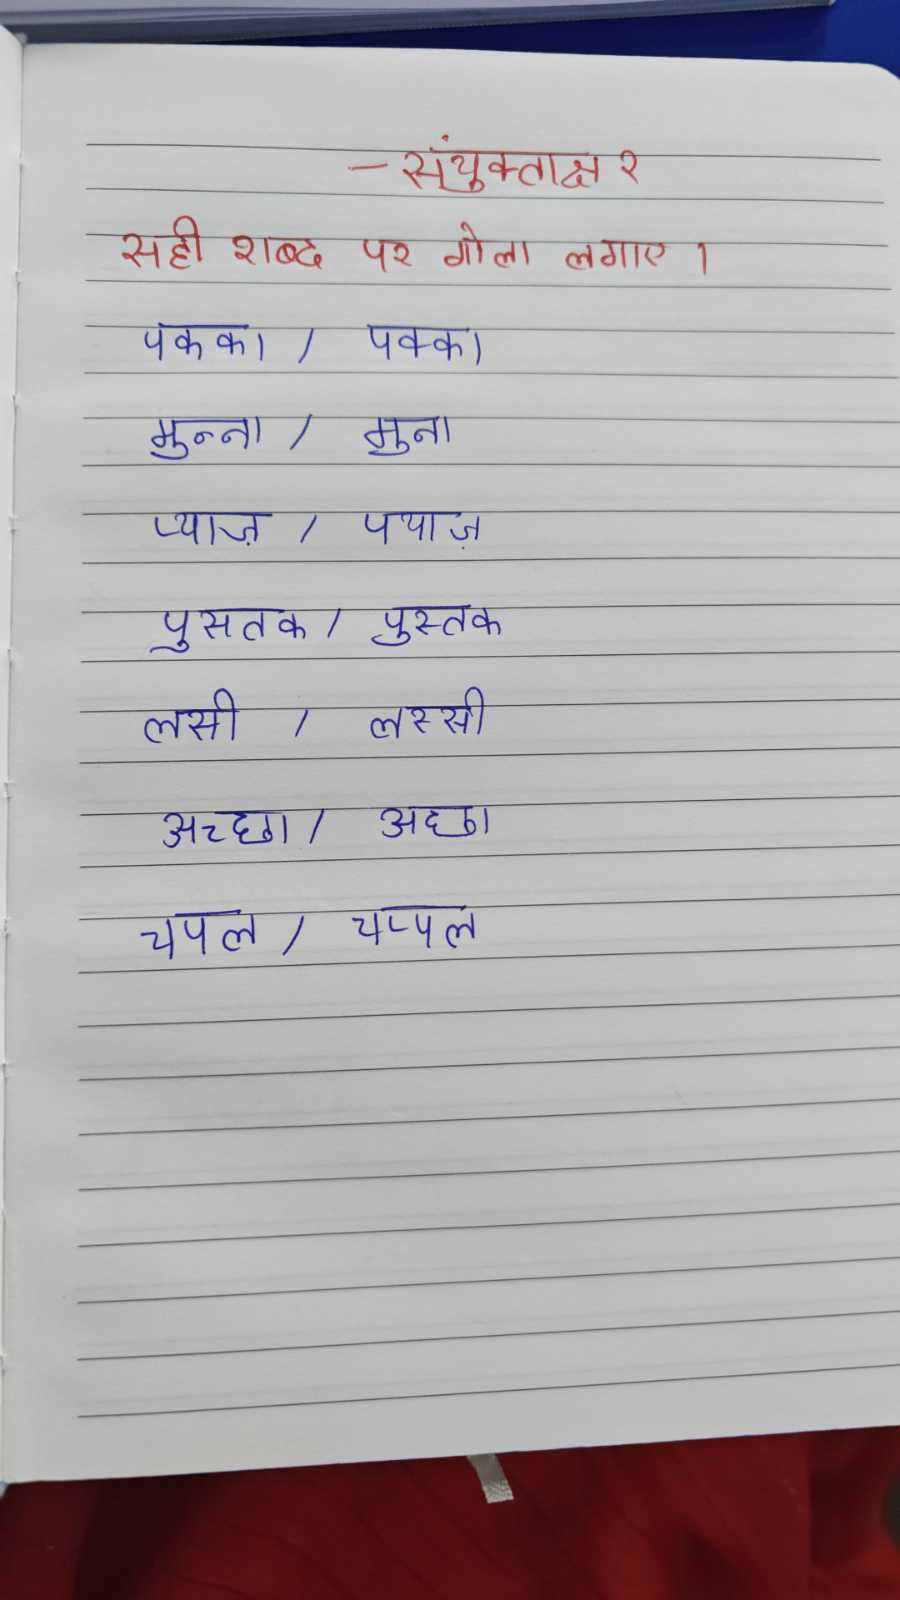 – संयुक्ताक्षर
सही शब्द पर गोला लगाए ।
पकका / पक्का
मुन्ना / मुना
प्याज़ / पयाज़
पुसतक / पुस्तक
लसी / लस्सी
अच्छा / अछा
चपल / चप्पल